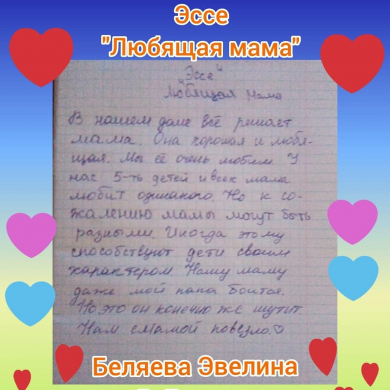 Эссе
"Любящая мама"
Эссе"
"Любящая мама
В нашем доме всё решает
мама. Она хорошая и любя-
щая. Мы её очень любим. У
нас 5-ть детей и всех мама
любит одинаково. Но к со-
жалению мамы могут быть
разными. Иногда этому
способствуют дети своим
характером. Нашу маму
даже мой папа боится.
Но это он конечно же шутит.
Нам с мамой повезло.♡
Беляева Эвелина